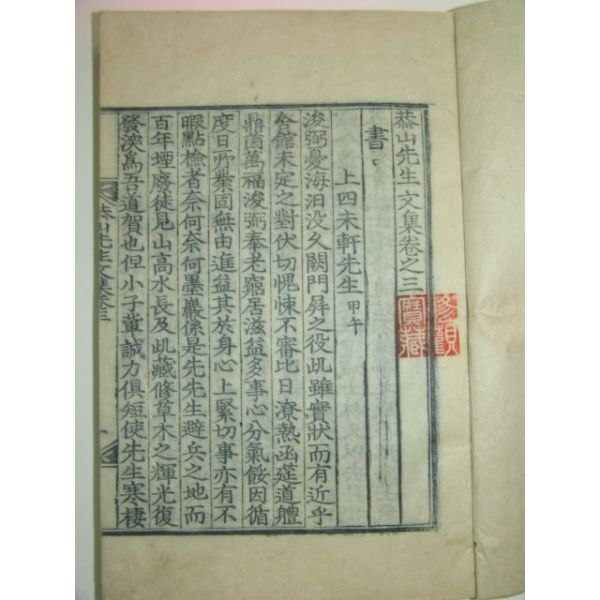 恭山先生文集卷之三
書
上四未軒先生 甲午
浚弼憂海汨沒久闕門屛之役此雖實狀而有近乎
舍館未定之對伏切愧悚不審比日潦熱函筵道體
鼎茵萬福浚弼奉老窮居滋益多事心分氣餒因循
度日所業固無由進益其於身心上緊切事亦有不
暇點檢者奈何奈何墨巖係是先先生避兵之地而
百年堙廢徒見山高水長及此藏修草木之輝光復
發深爲吾道賀也但小子軰誠力俱短使先生寒棲
恭山先生文集卷三
一
寶藏